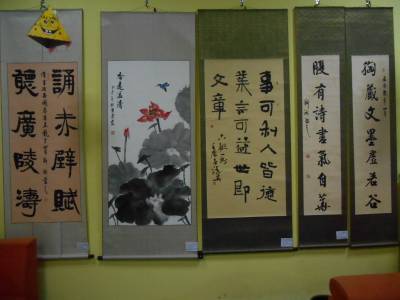 胸藏文墨虛若谷
腹有詩書氣自華
事可利人皆德
業言可益世即
文章
香遠益清
誦赤壁賦
聽廣陵濤